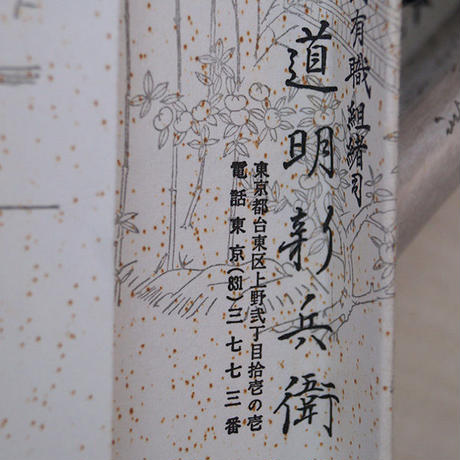 有職組緒司
道明新兵衛
東京都台東区上野弐丁目拾壱の壱
電話東京(831)三七七三番